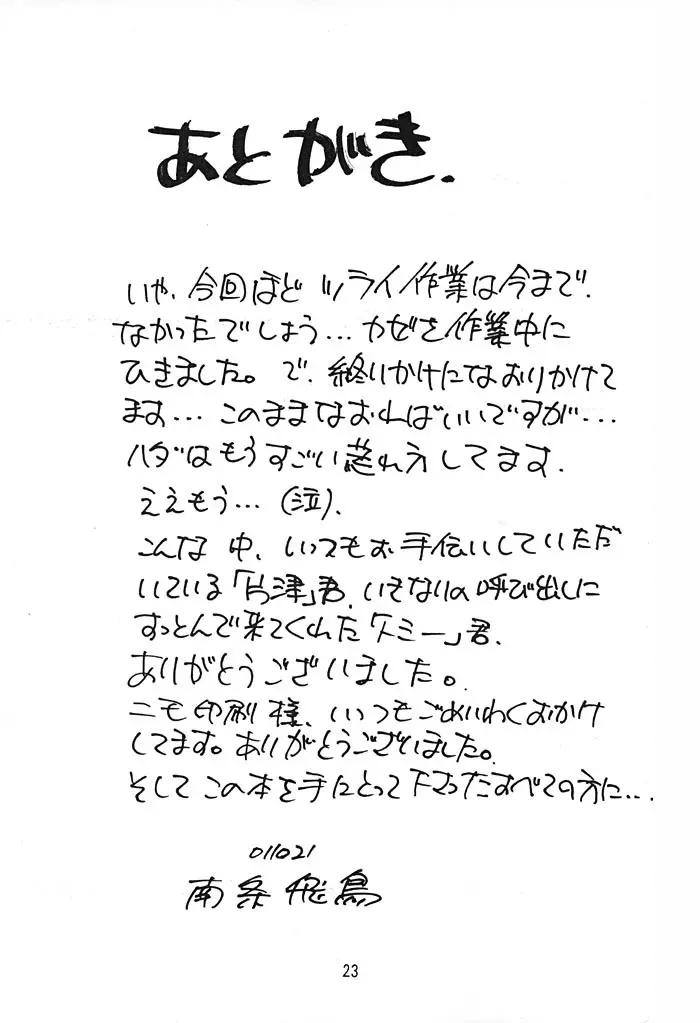 あとがき.
いや、今回ほどツライ作業は今まで、
なかったでしょう...カゼを作業中に
ひきました。で、終りかけになおりかけて
ます...このままなおればいいですが...
ハダはもうすごい荒れ方してます.
ええもう...(泣).
こんな中、いつもお手伝いしていただ
いている「片津」君、いきなりの呼び出しに
すっとんで来てくれた「クミー」君、
ありがとうございました。
ニモ印刷様、いつもごめいわくおかけ
してます。ありがとうございました。
そしてこの本を手にとって下さったすべての方に...
011021
南条飛鳥
23